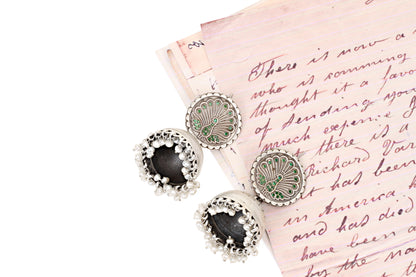 There is now a
who is comming
thought it a favo
of sending you
much expense
there is a
Richard Var
it has been
in America
and has died
have been a
by the